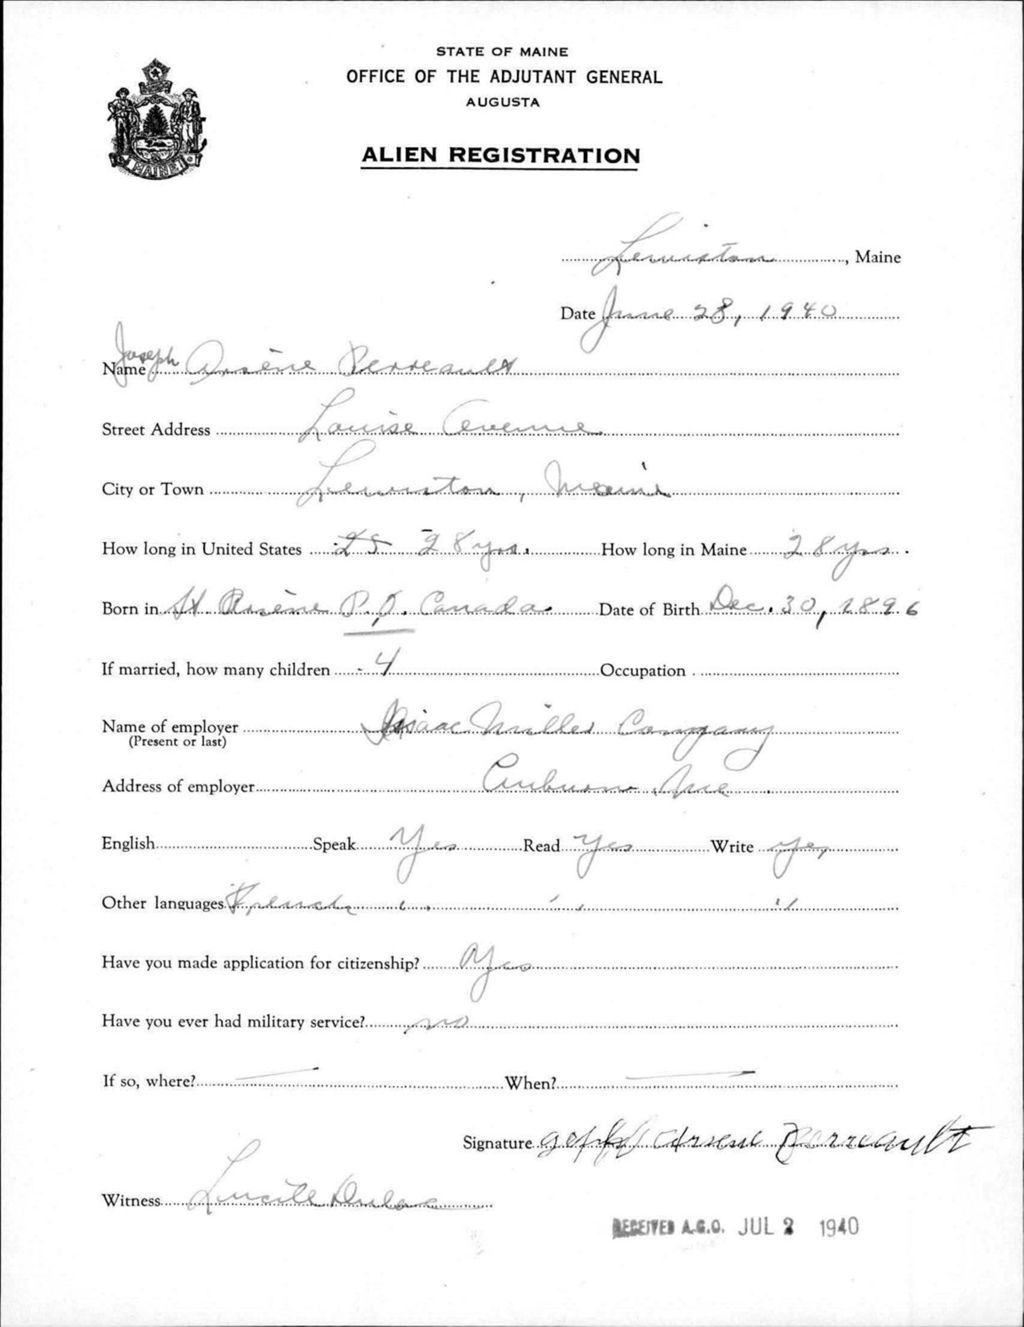 STATE OF MAINE
OFFICE OF THE ADJUTANT GENERAL
AUGUSTA
ALIEN REGISTRATION
MAINE
Lewiston, Maine
Date June 28, 1940
Name Joseph Arsène Perreault
Street Address Louise Avenue
City or Town Lewiston, Maine
How long in United States 28 yrs. How long in Maine 28 yrs.
Born in St Arsène P.Q. Canada Date of Birth Dec. 30, 1896
If married, how many children - 4 Occupation
Name of employer Isaac Miller Company
(Present or last)
Address of employer Auburn, Me.
English Speak Yes Read Yes Write yes
Other languages French " " "
Have you made application for citizenship? Yes
Have you ever had military service? no
If so, where? — When? —
Signature Arsene Perreault
Witness Lucille Dulac
RECEIVED A.G.O. JUL 2 1940